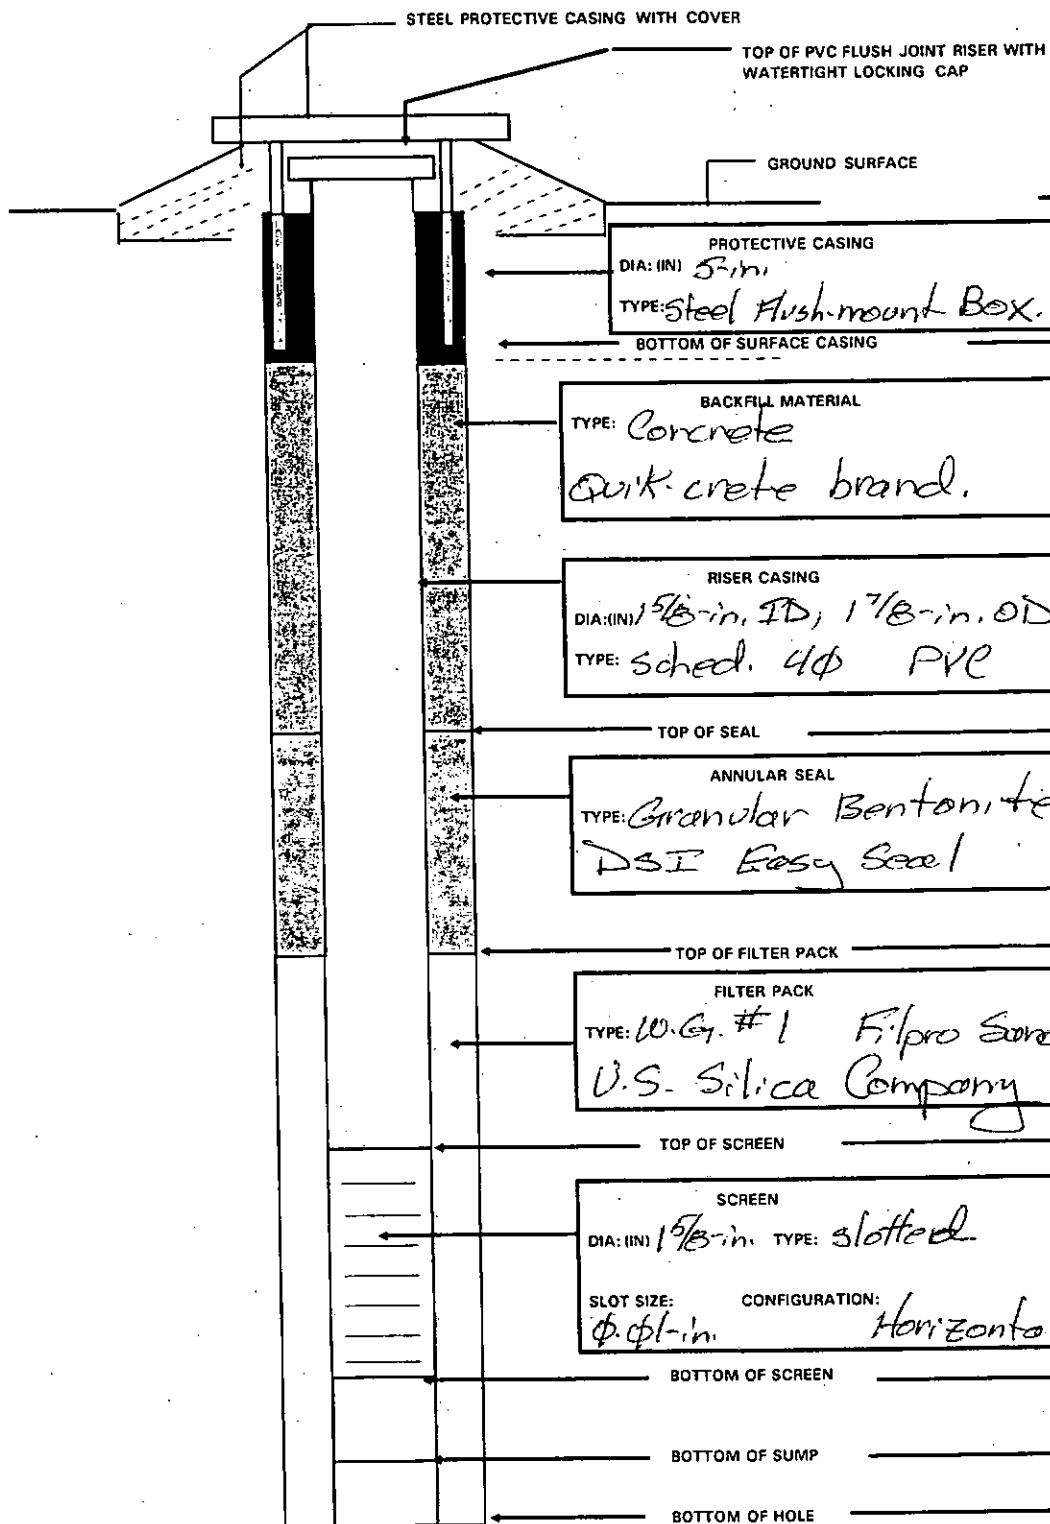 STEEL PROTECTIVE CASING WITH COVER
TOP OF PVC FLUSH JOINT RISER WITH
WATERTIGHT LOCKING CAP
GROUND SURFACE
PROTECTIVE CASING
DIA: (IN) 5-in.
TYPE: Steel Flush-mount Box.
BOTTOM OF SURFACE CASING
BACKFILL MATERIAL
TYPE: Concrete
Quik-crete brand.
RISER CASING
DIA:(IN) 1 5/8-in. ID, 1 7/8-in. OD
TYPE: Sched. 4∅ PVC
TOP OF SEAL
ANNULAR SEAL
TYPE: Granular Bentonite
DSI Easy Seal
TOP OF FILTER PACK
FILTER PACK
TYPE: W.G. #1 Filpro San
U.S. Silica Company
TOP OF SCREEN
SCREEN
DIA: (IN) 1 5/8-in. TYPE: slotted
SLOT SIZE: CONFIGURATION:
∅.∅1-in. Horizonta
BOTTOM OF SCREEN
BOTTOM OF SUMP
BOTTOM OF HOLE